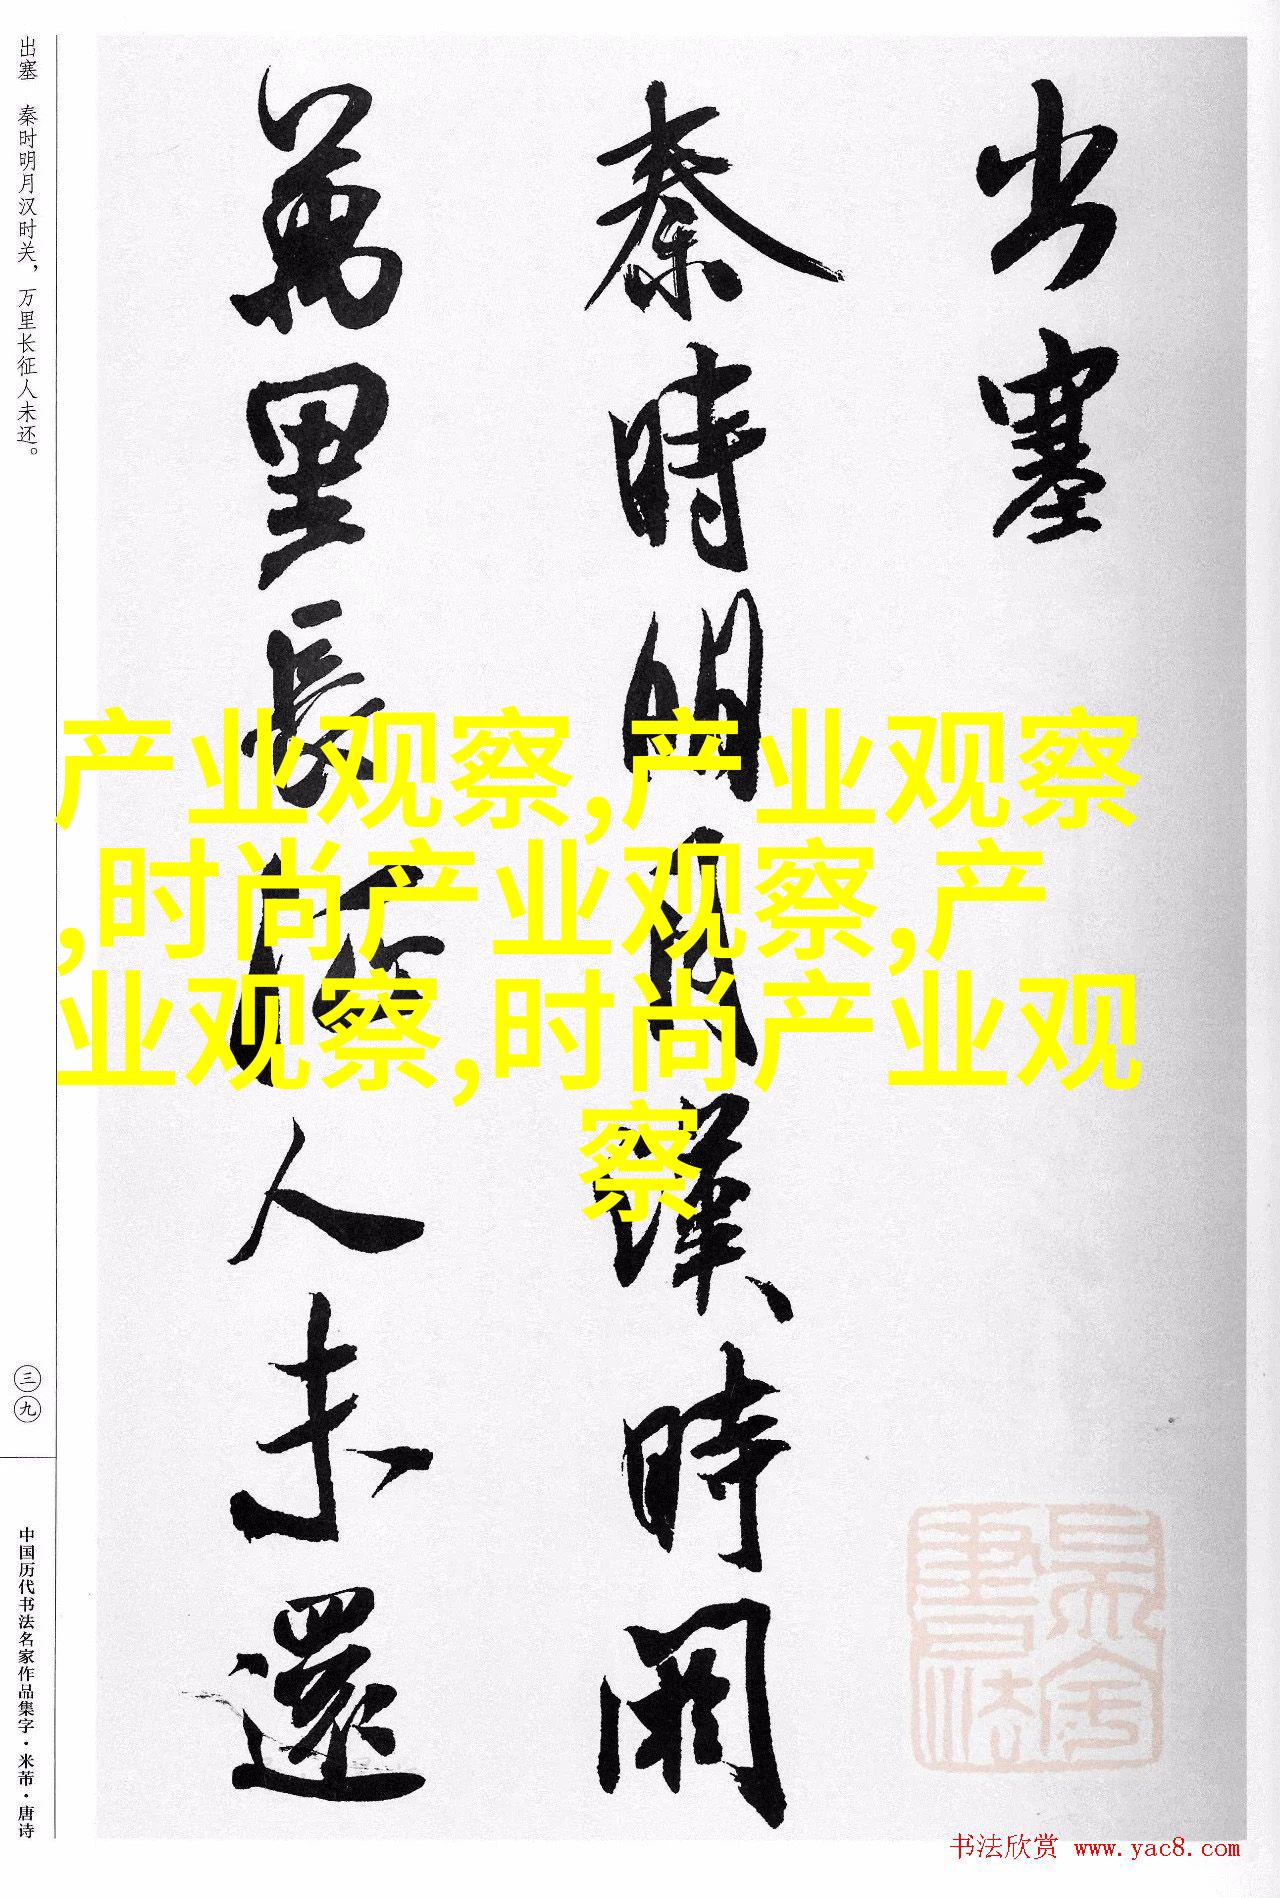 出塞
秦時明月漢時關
萬里長征人未還
产业观察,产业观察
,时尚产业观察,产
业观察,时尚产业观
察
出塞 秦时明月汉时关，万里长征人未还。
三九
中国历代书法名家作品集字·米芾·唐诗
书法
书法欣赏 www.yac8.com